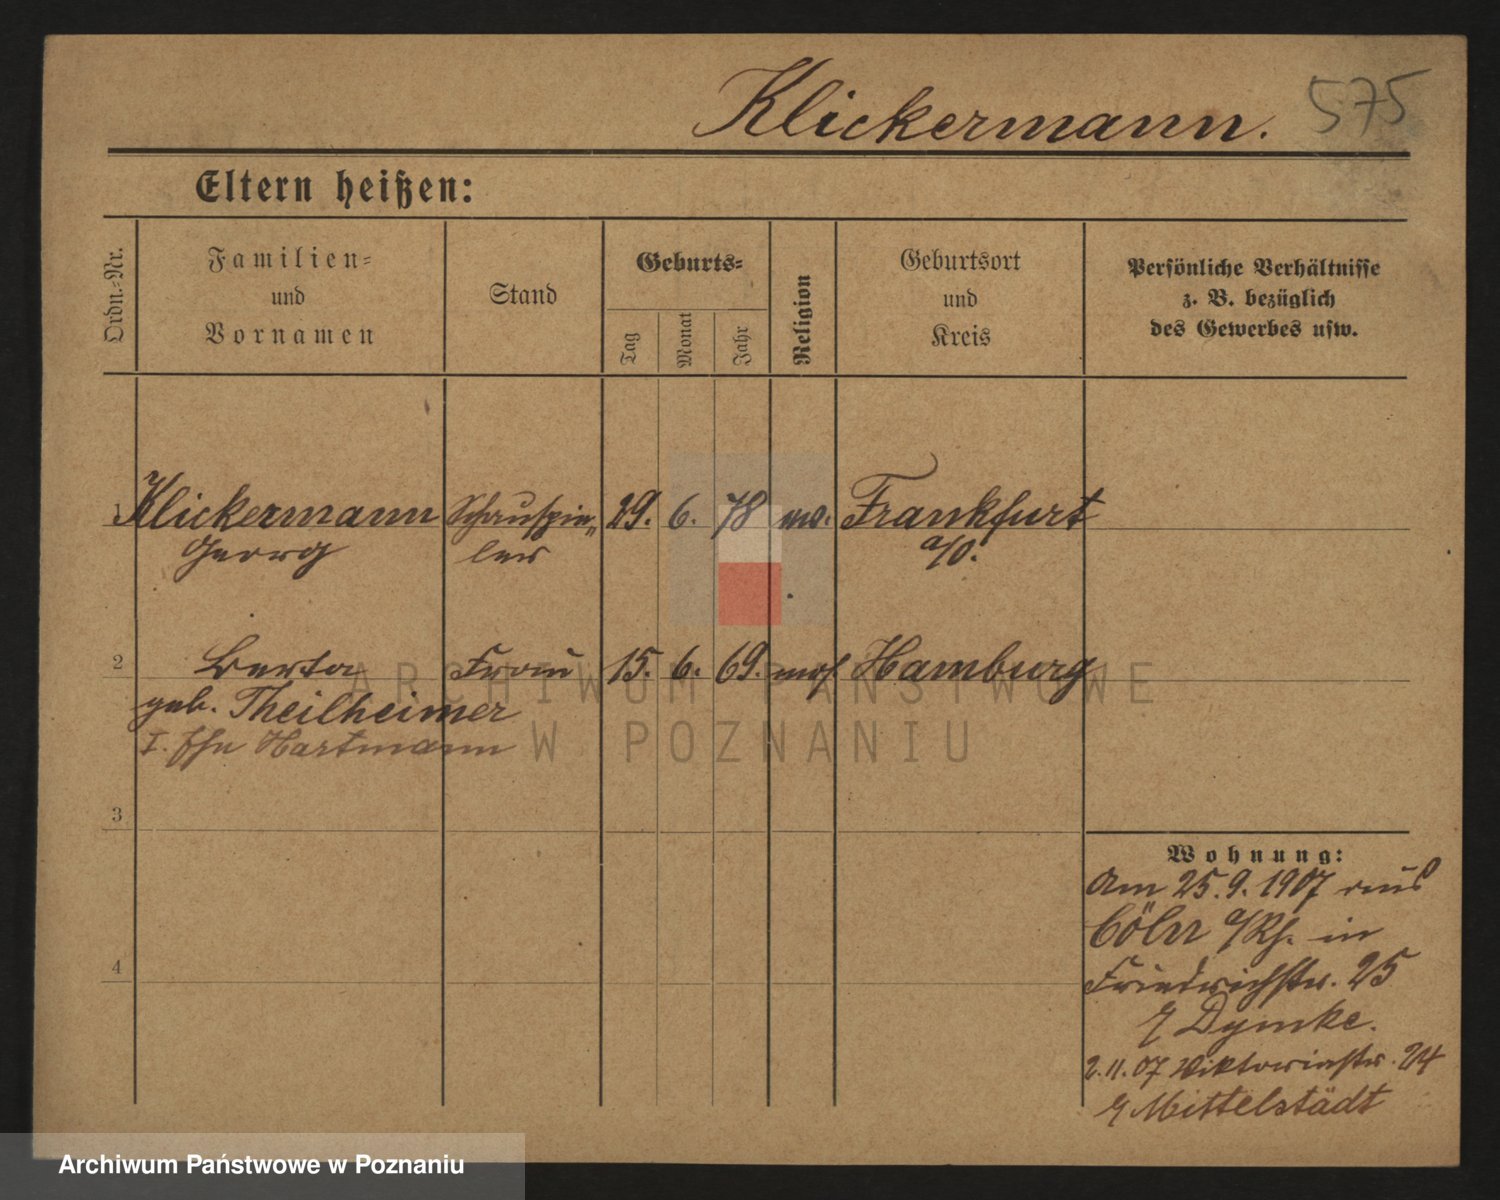 Klickermann. 575
Eltern heißen:
Ordn.=Nr.
Familien=
und
Vornamen
Stand
Geburts=
Tag
Monat
Jahr
Religion
Geburtsort
und
Kreis
Persönliche Verhältnisse
z. B. bezüglich
des Gewerbes usw.
1 Klickermann Schauspie„ 29. 6. 78 Frankfurt
Georg ler a/O.
2 Berta Frau 15. 6. 69. mos. Hamburg
geb. Theilheimer
I. Ehe Hartmann
3
4
Wohnung:
Am 25.9.1907 aus
Cöln a/Rh. in
Friedrichstr. 25
Dymke.
2.11.07 Viktoriastr. 24
Mittelstädt
ARCHIWUM PAŃSTWOWE
W POZNANIU
Archiwum Państwowe w Poznaniu